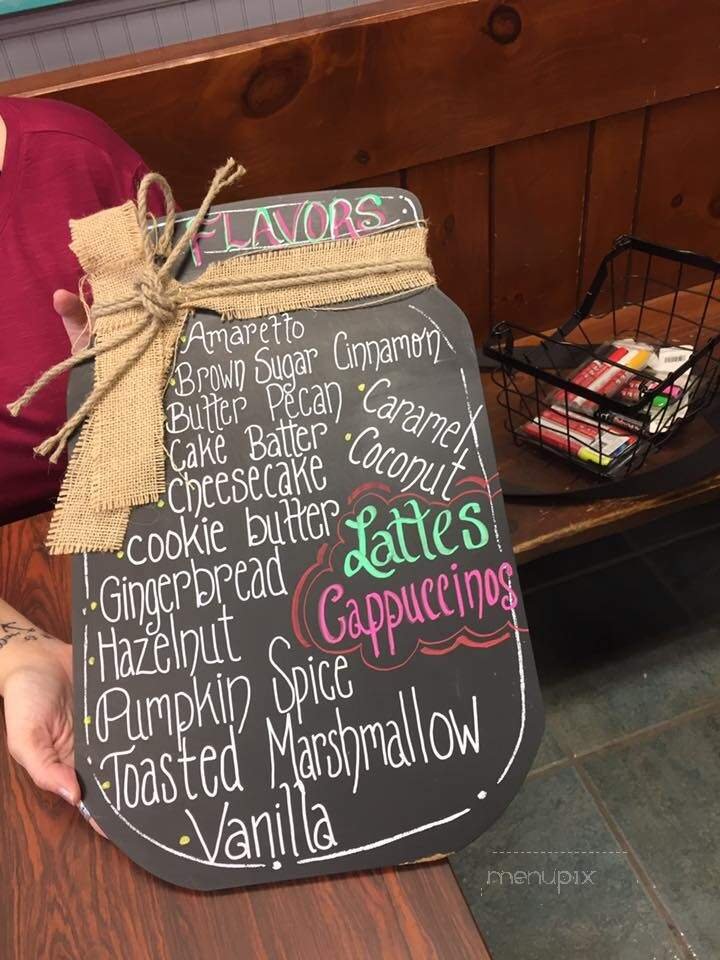 FLAVORS
Amaretto
Brown Sugar Cinnamon
Butter Pecan
Caramel
Cake Batter
Coconut
cheesecake
cookie butter
Lattes
Gingerbread
Cappuccinos
Hazelnut
Pumpkin Spice
Toasted Marshmallow
Vanilla
menupix